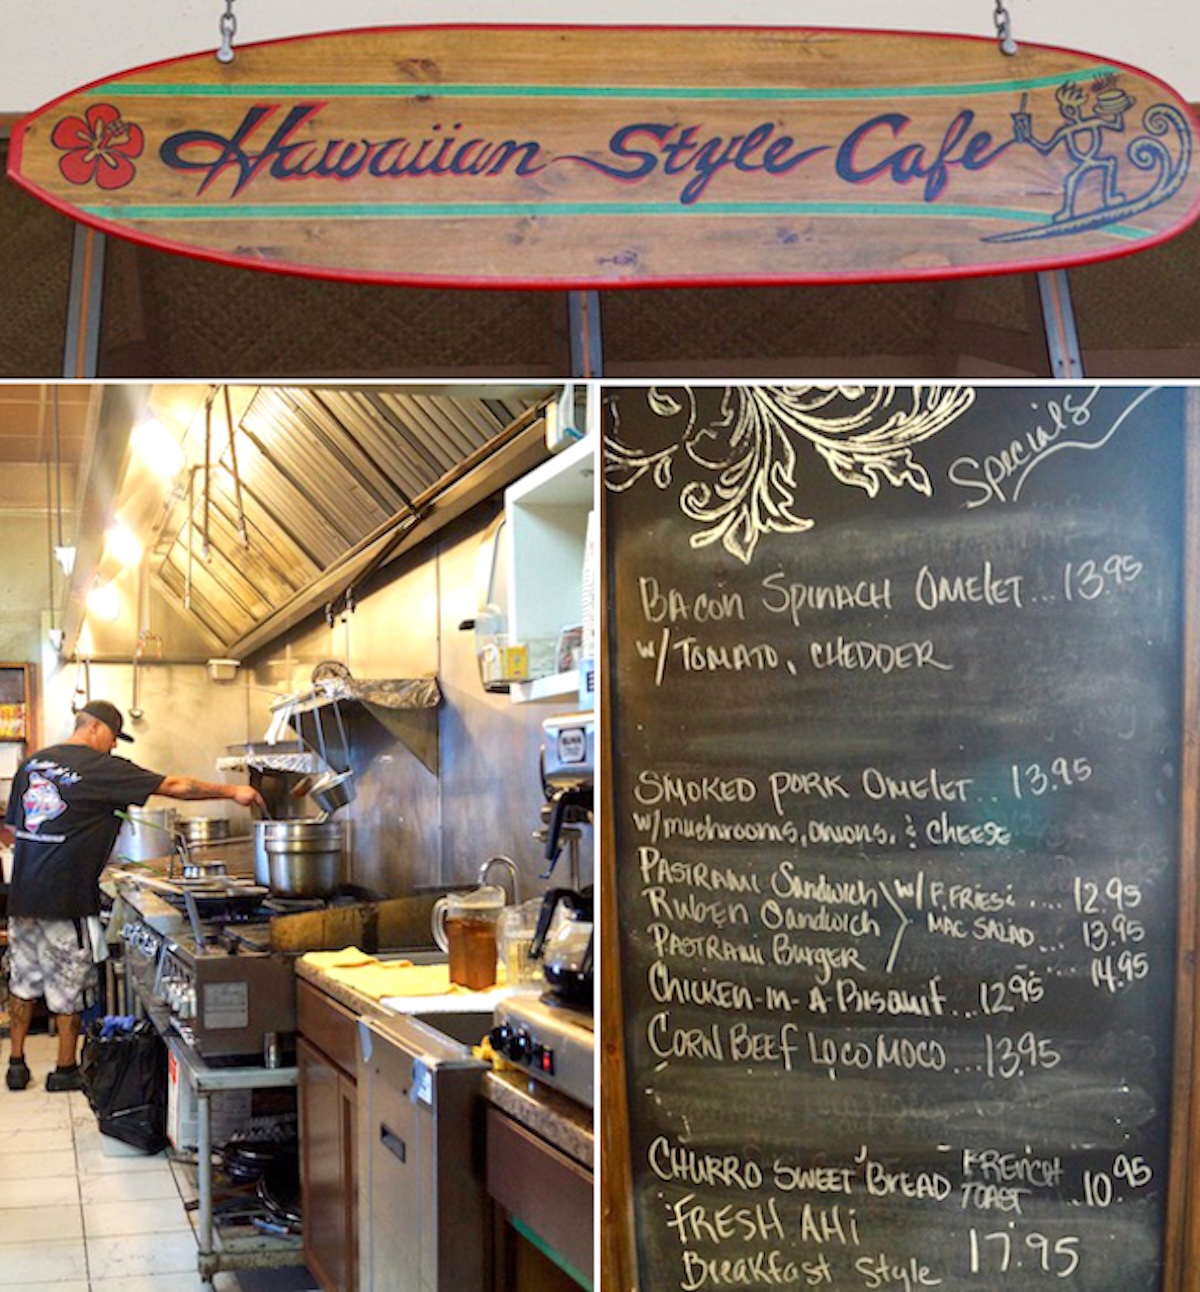 Hawaiian Style Cafe
Specials
BACON SPINACH OMELET...13.95
w/ TOMATO, CHEDDER
SMOKED PORK OMELET..13.95
w/mushrooms, onions, & CHEESE
PASTRAMI Sandwich w/ F. FRIES & .... 12.95
RUBEN Sandwich MAC SALAD... 13.95
PASTRAMI Burger ..... 14.95
CHICKEN-IN-A-BISQUIT...12.95
CORN BEEF LOCO MOCO ...13.95
CHURRO SWEET BREAD FRENCH TOAST ..10.95
FRESH AHi
Breakfast Style 17.95
BUNN